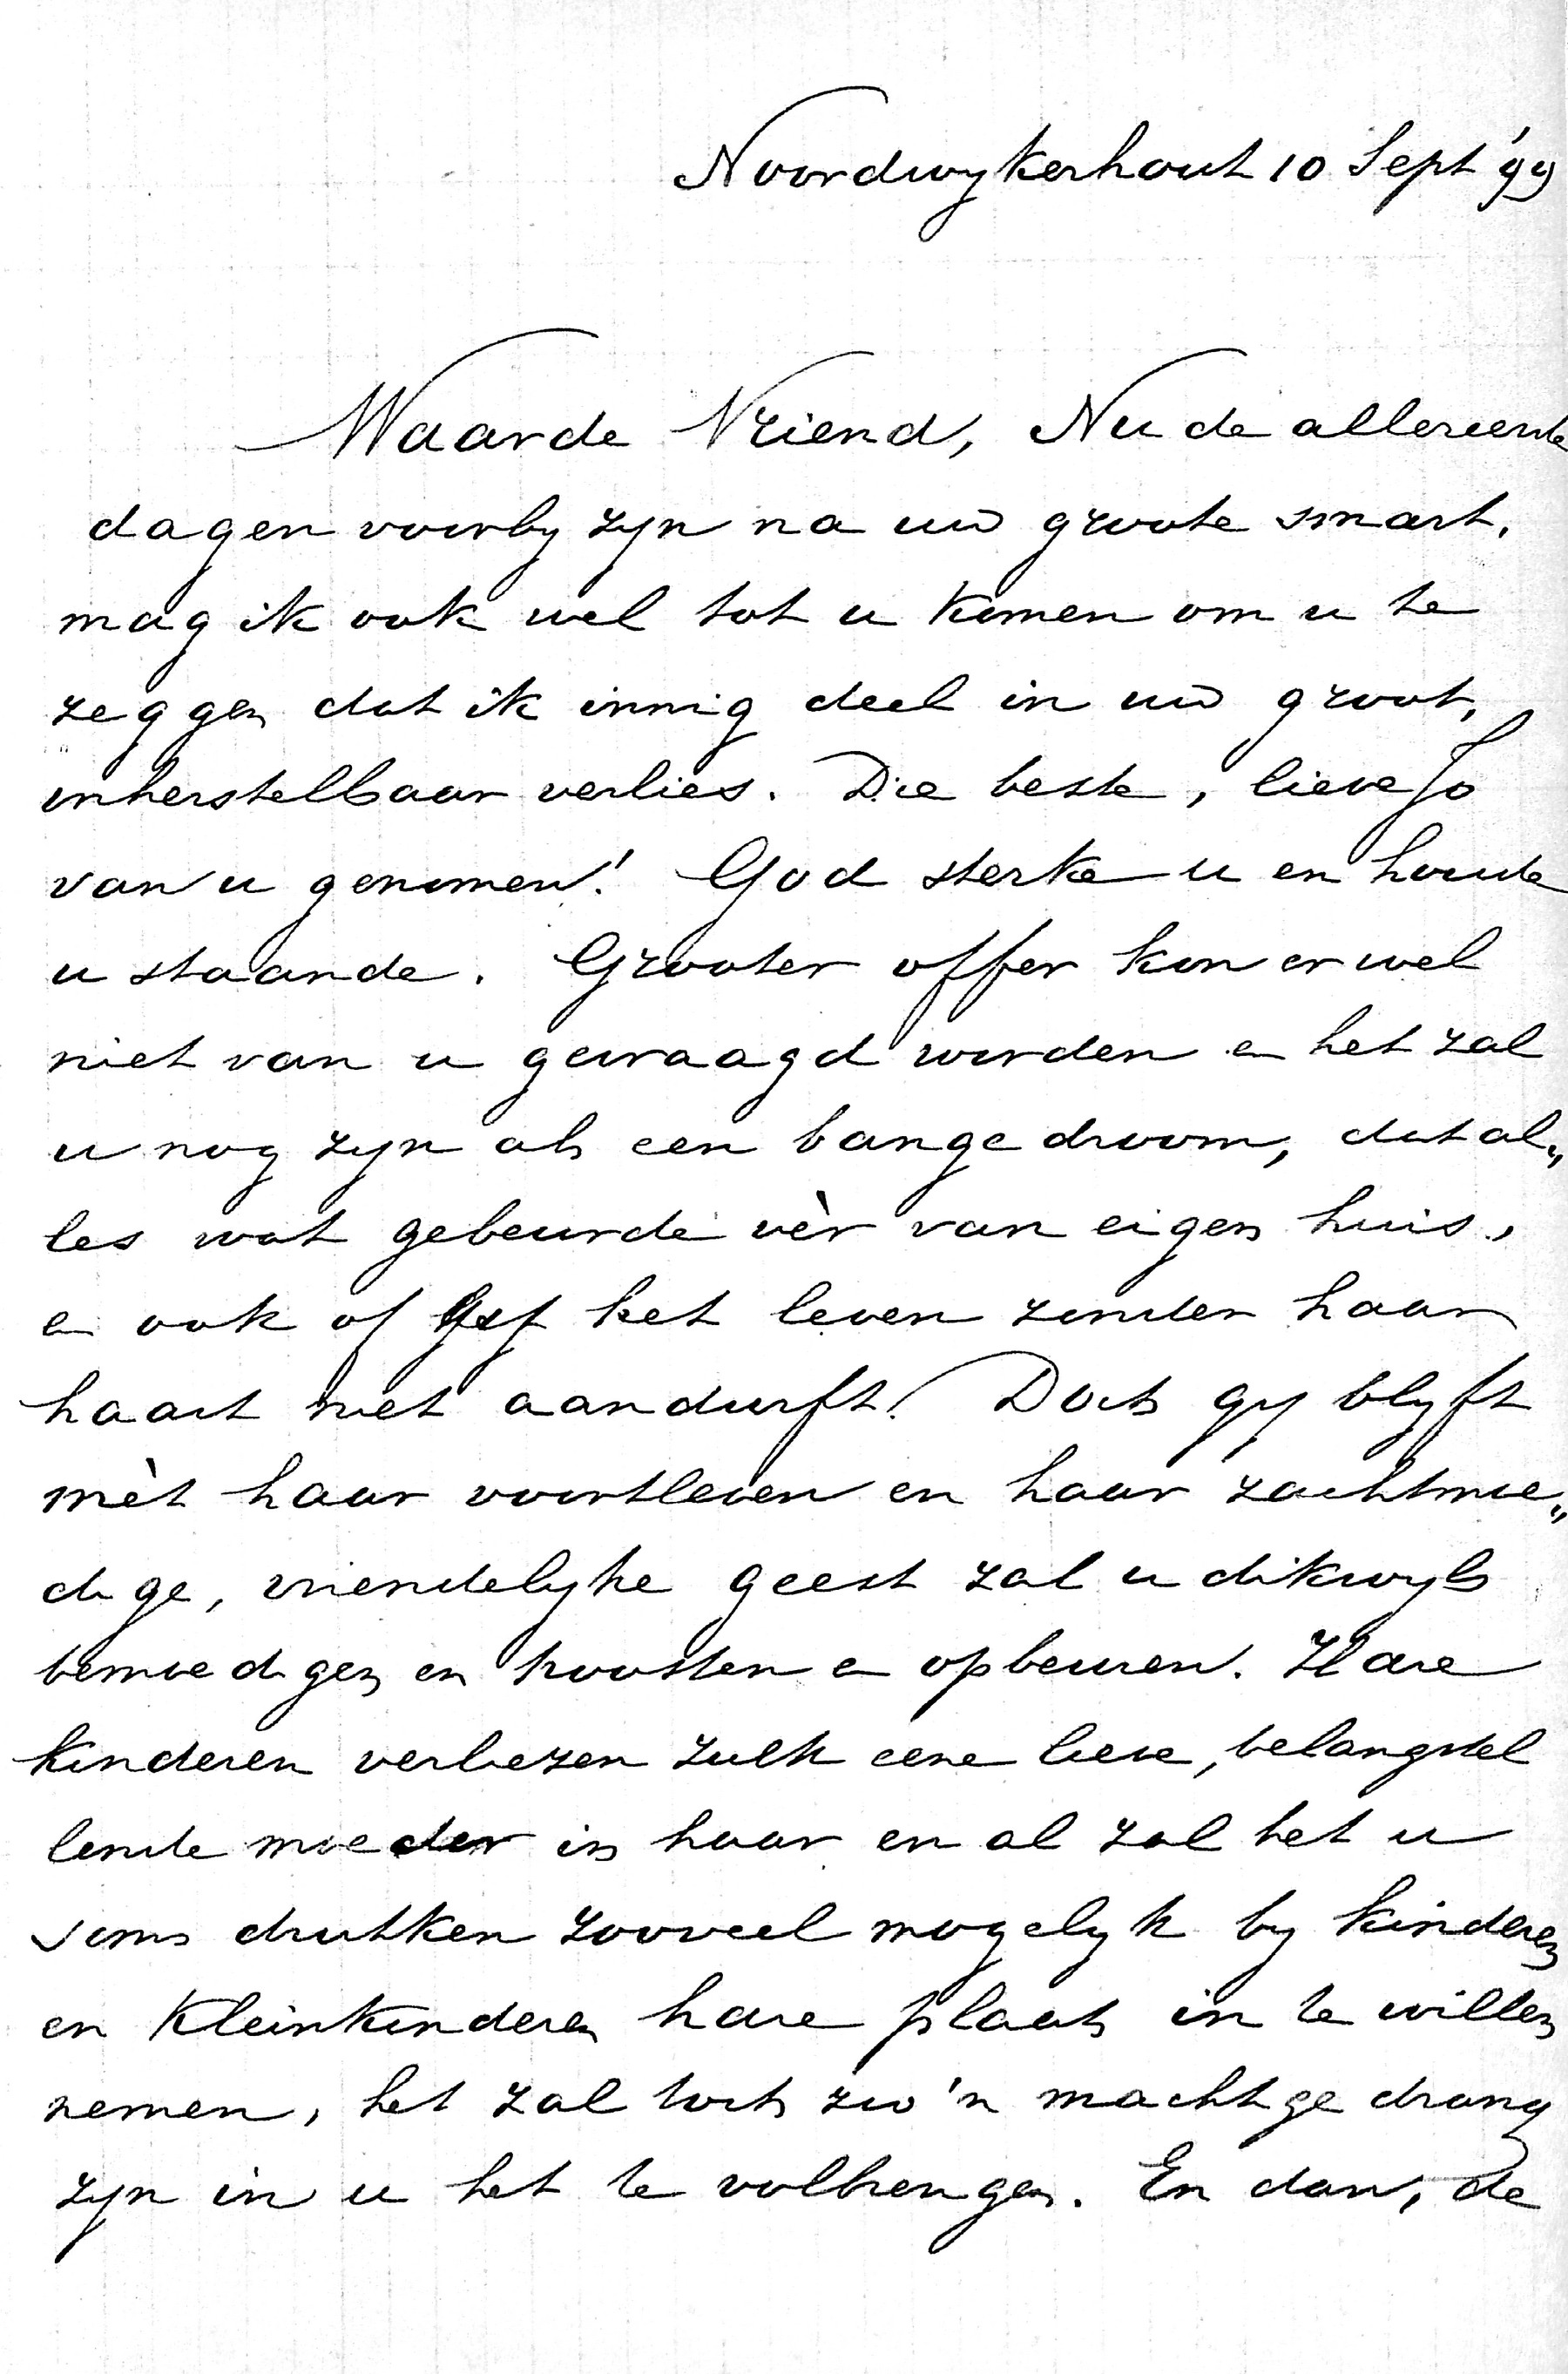 Noordwykerhout 10 Sept '99
Waarde Vriend, Nu de allereerste
dagen voorby zyn na uw groote smart,
mag ik ook wel tot u komen om u te
zeggen dat ik innig deel in uw groot,
onherstelbaar verlies. Die beste, lieve Jo
van u genomen! God sterke u en houde
u staande. Grooter offer kon er wel
niet van u gevraagd worden en het zal
u nog zyn als een bange droom, dat al„
les wat gebeurde vèr van eigen huis,
en ook of gy het leven zonder haar
haast niet aandurft! Doch gy blyft
mèt haar voortleven en haar zachtmoe„
dige, vriendelyke geest zal u dikwyls
bemoedigen en troosten en opbeuren. Hare
kinderen verliezen zulk eene lieve, belangstel
lende moeder in haar en al zal het u
soms drukken zooveel mogelyk by kinderen
en kleinkinderen hare plaats in te willen
nemen, het zal toch zoo'n machtige drang
zyn in u het te volbrengen. En dan, de